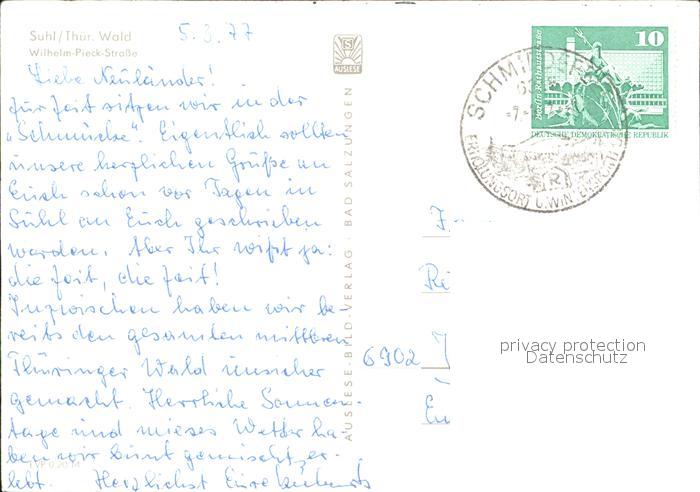 Suhl/Thür. Wald
Wilhelm-Pieck-Straße
5.3.77
Liebe Neuländer!
Zur Zeit sitzen wir in der
"Schmücke". Eigentlich sollten
unsere herzlichen Grüße an
Euch schon vor Tagen in
Suhl an Euch geschrieben
werden. Aber Ihr wißt ja:
die Zeit, die Zeit!
Inzwischen haben wir be-
reits den gesamten mittleren
Thüringer Wald unsicher
gemacht. Herrliche Sonnen-
tage und mieses Wetter ha-
ben wir bunt gemischt er-
lebt. Herzlichst Eure
IVP 0.20 M
S
AUSLESE
AUSLESE-BILD-VERLAG · BAD SALZUNGEN
10
Berlin Rathausstraße
DEUTSCHE DEMOKRATISCHE REPUBLIK
ERHOLUNGSORT U. WIN
R
6902 J
Ri
privacy protection
Datenschutz